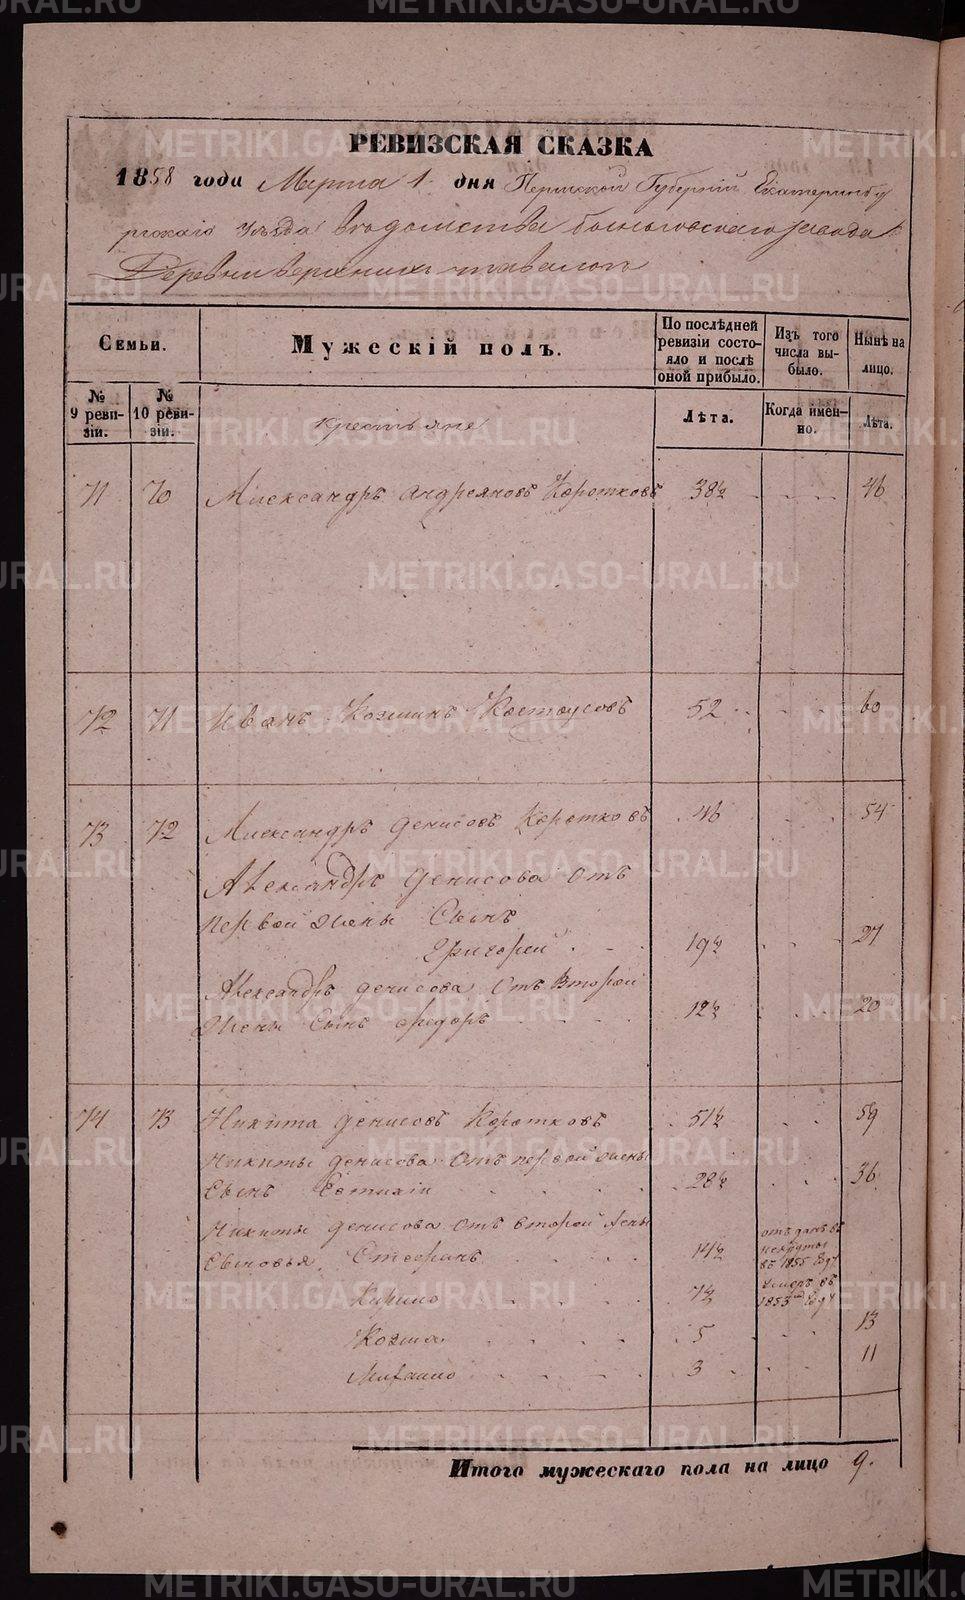 РЕВИЗСКАЯ СКАЗКА
1858 года Марта 1 дня Пермской Губерніи Екатеринбу
ргскаго уѣзда Ведомства заводa
Деревни верхнихъ тавалогъ
Семьи.
Мужескій полъ.
По послѣдней ревизіи состояло и послѣ оной прибыло.
Изъ того числа выбыло.
Нынѣ на лицо.
№ 9 ревизіи.
№ 10 ревизіи.
Лѣта.
Когда именно.
Лѣта.
Крестьяне
71 70 Александръ Андреяновъ Коротковъ 38½ 46
72 71 Иванъ Козминъ Костоусовъ 52 60
73 72 Александръ Денисовъ Коротковъ 46 54
Александръ Денисова Отъ
первой жены Сынъ
Григорей 19½ 27
Александръ Денисова Отъ Второй
Жены Сынъ Федоръ 12½ 20
74 73 Никита Денисовъ Коротковъ 51½ 59
Никиты Денисова Отъ первой жены
Сынъ Евтихіи 28½ 36
Никиты Денисова Отъ второй жены
Сыновья Стефанъ 14½ отъданъ въ некруты въ 1855 Году
Кирило 7½ Умеръ въ 1853 Году
Козма 5 13
Михаило 3 11
Итого мужескаго пола на лицо 9.
METRIKI.GASO-URAL.RU